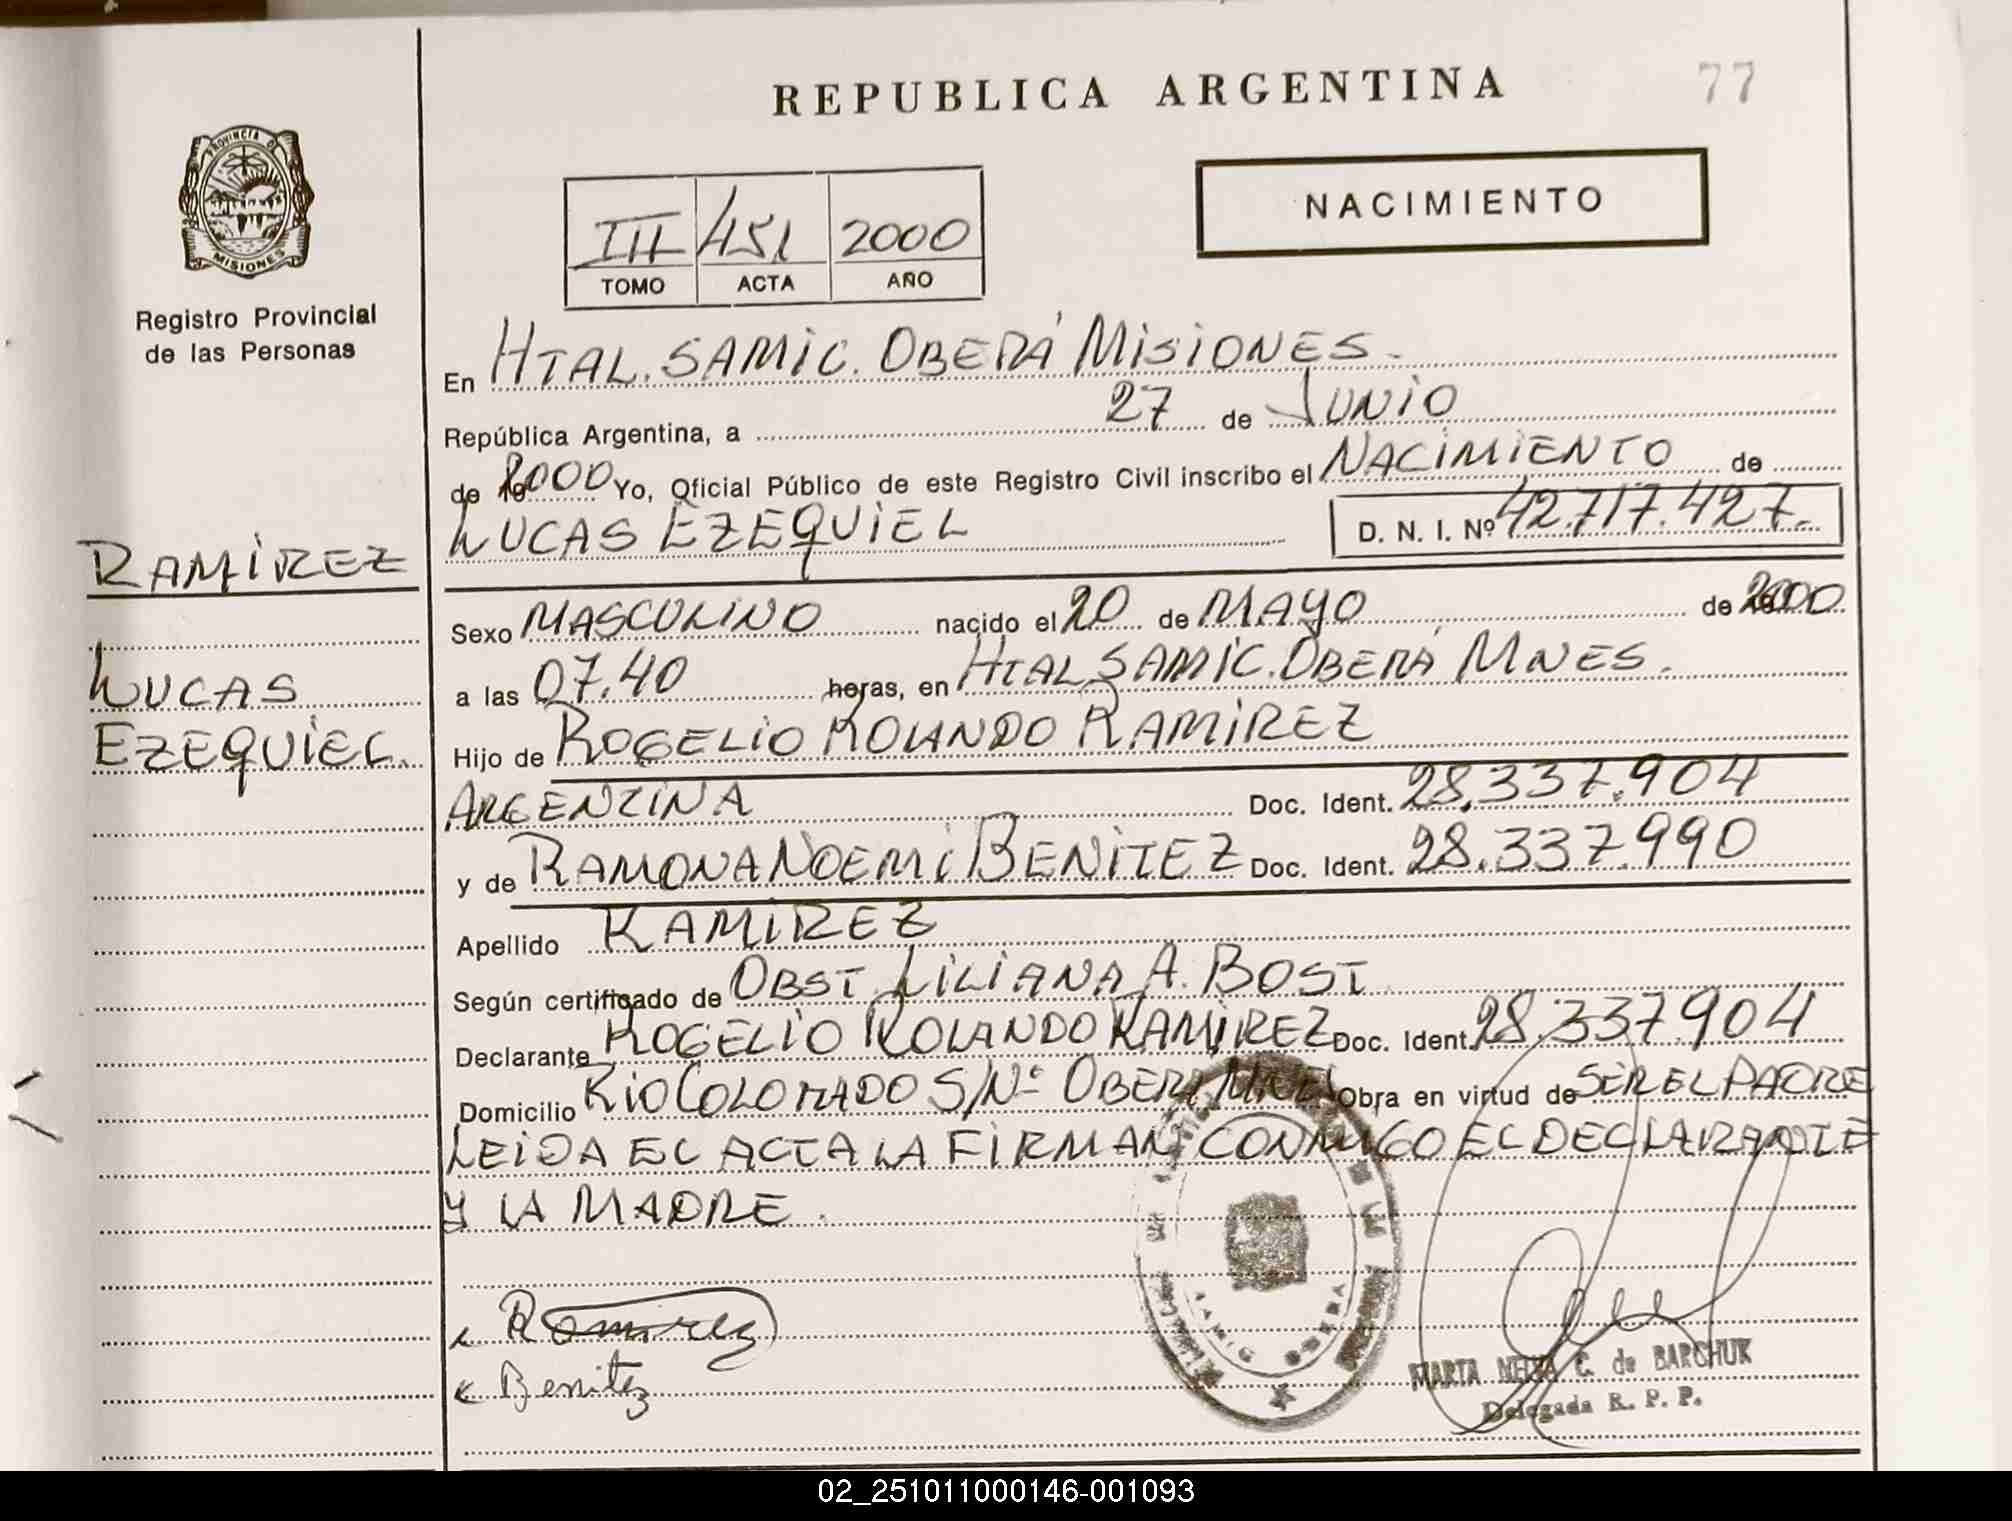 REPUBLICA ARGENTINA
77
PROVINCIA DE
MISIONES
Registro Provincial
de las Personas
III 451 2000
TOMO ACTA AÑO
NACIMIENTO
En HTAL. SAMIC. OBERÁ MISIONES.
República Argentina, a 27 de JUNIO
de 2000 Yo, Oficial Público de este Registro Civil inscribo el NACIMIENTO de
LUCAS EZEQUIEL D. N. I. Nº 42.717.427.
RAMIREZ
LUCAS
EZEQUIEL.
Sexo MASCULINO nacido el 20 de MAYO de 2000
a las 07.40 horas, en HTAL SAMIC. OBERÁ MNES.
Hijo de ROGELIO ROLANDO RAMIREZ
ARGENTINA Doc. Ident. 28.337.904
y de RAMONA NOEMI BENITEZ Doc. Ident. 28.337.990
Apellido RAMIREZ
Según certificado de OBST. LILIANA A. BOST
Declarante ROGELIO ROLANDO RAMIREZ Doc. Ident. 28.337.904
Domicilio RIO COLORADO S/Nº OBERA MNES Obra en virtud de SER EL PADRE
LEIDA EL ACTA LA FIRMAN CONMIGO EL DECLARANTE
Y LA MADRE.
Ramirez
Benitez
OBERA
MARTA C. de BARCHUK
Delegada R. P. P.
02_251011000146-001093